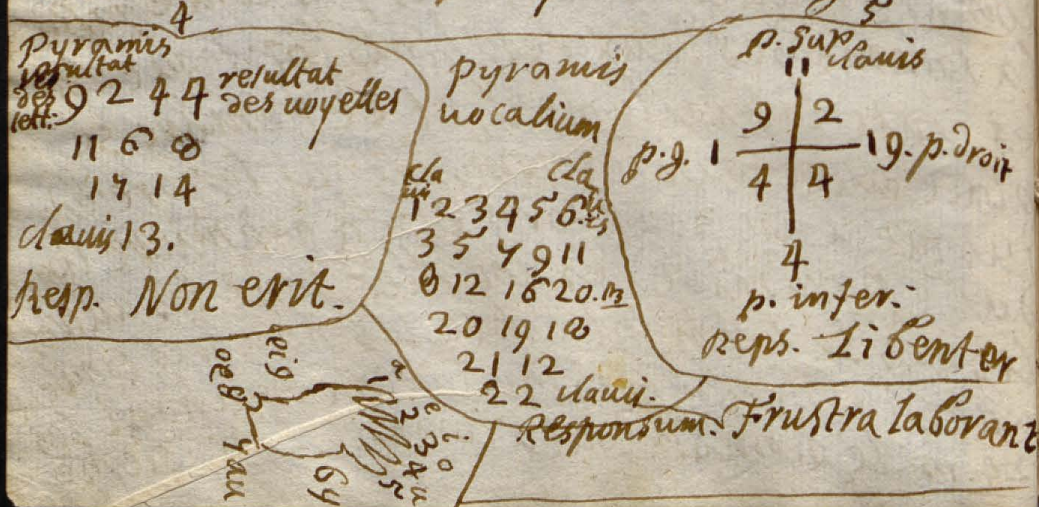 4
Pyramis
resultat
des
lett:
9 2 4 4 resultat
des voyelles
11 6 8
17 14
clavis 13.
Resp. Non erit.
pyramis
vocalium
cla
vis
cla
vis
1 2 3 4 5 6
3 5 7 9 11
8 12 16 20
20 19 18
21 12
22 clavis.
Responsum. Frustra laborant
5
p. sup
11 clavis
9 2
p. g. 1 19. p. droit
4 4
4
p. infer.
Reps. Libenter
a e i o u
1 2 3 4 5
6 y
7 au